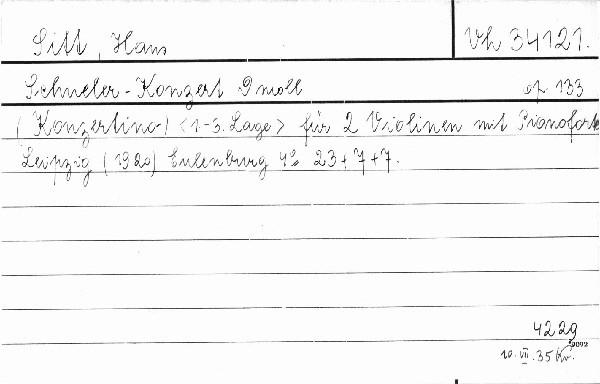 Sitt, Hans
Vh 34121.
Schüler-Konzert D moll op. 133
(Konzertino) <1-3. Lage> für 2 Violinen mit Pianoforte
Leipzig (1920) Eulenburg 4° 23+7+7.
4229
10. VII. 35